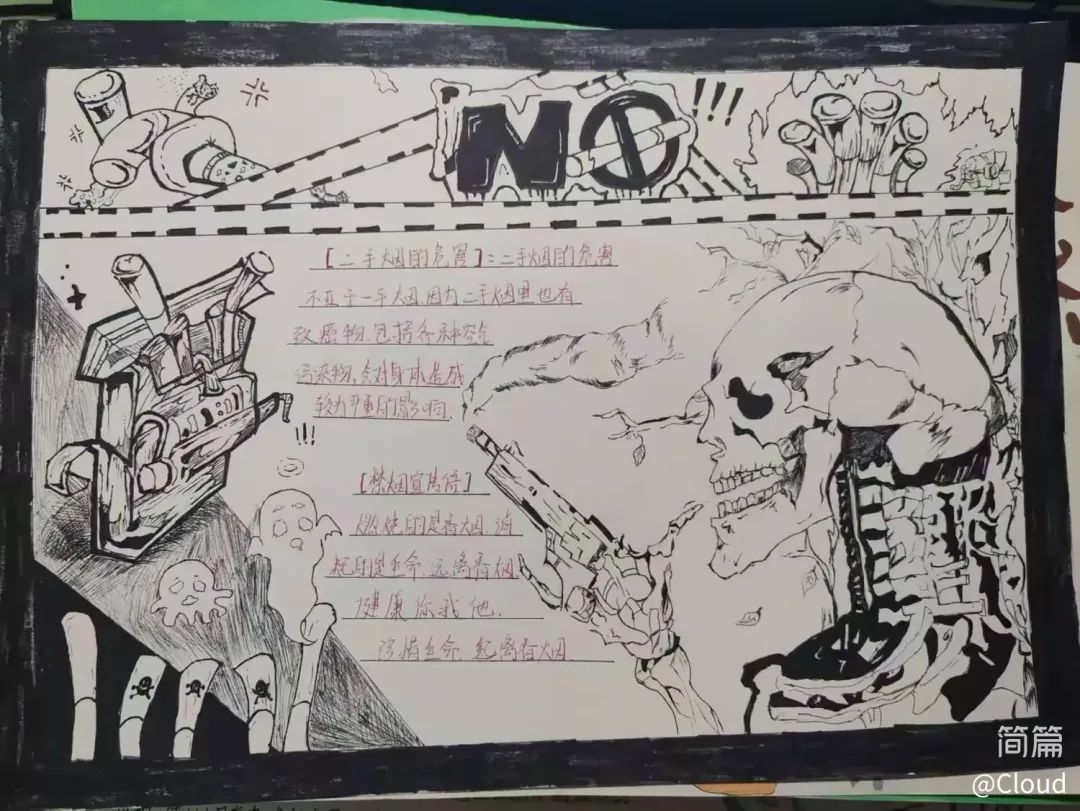 NO!!!
【二手烟的危害】:二手烟的危害
不亚于一手烟,因为二手烟里也有
致癌物,包括各种空气
污染物,会对身体造成
较为严重的影响.
!!!
【禁烟宣传语】
燃烧的是香烟,消
耗的是生命,远离香烟
健康你我他.
珍惜生命,远离香烟.
简篇
@Cloud